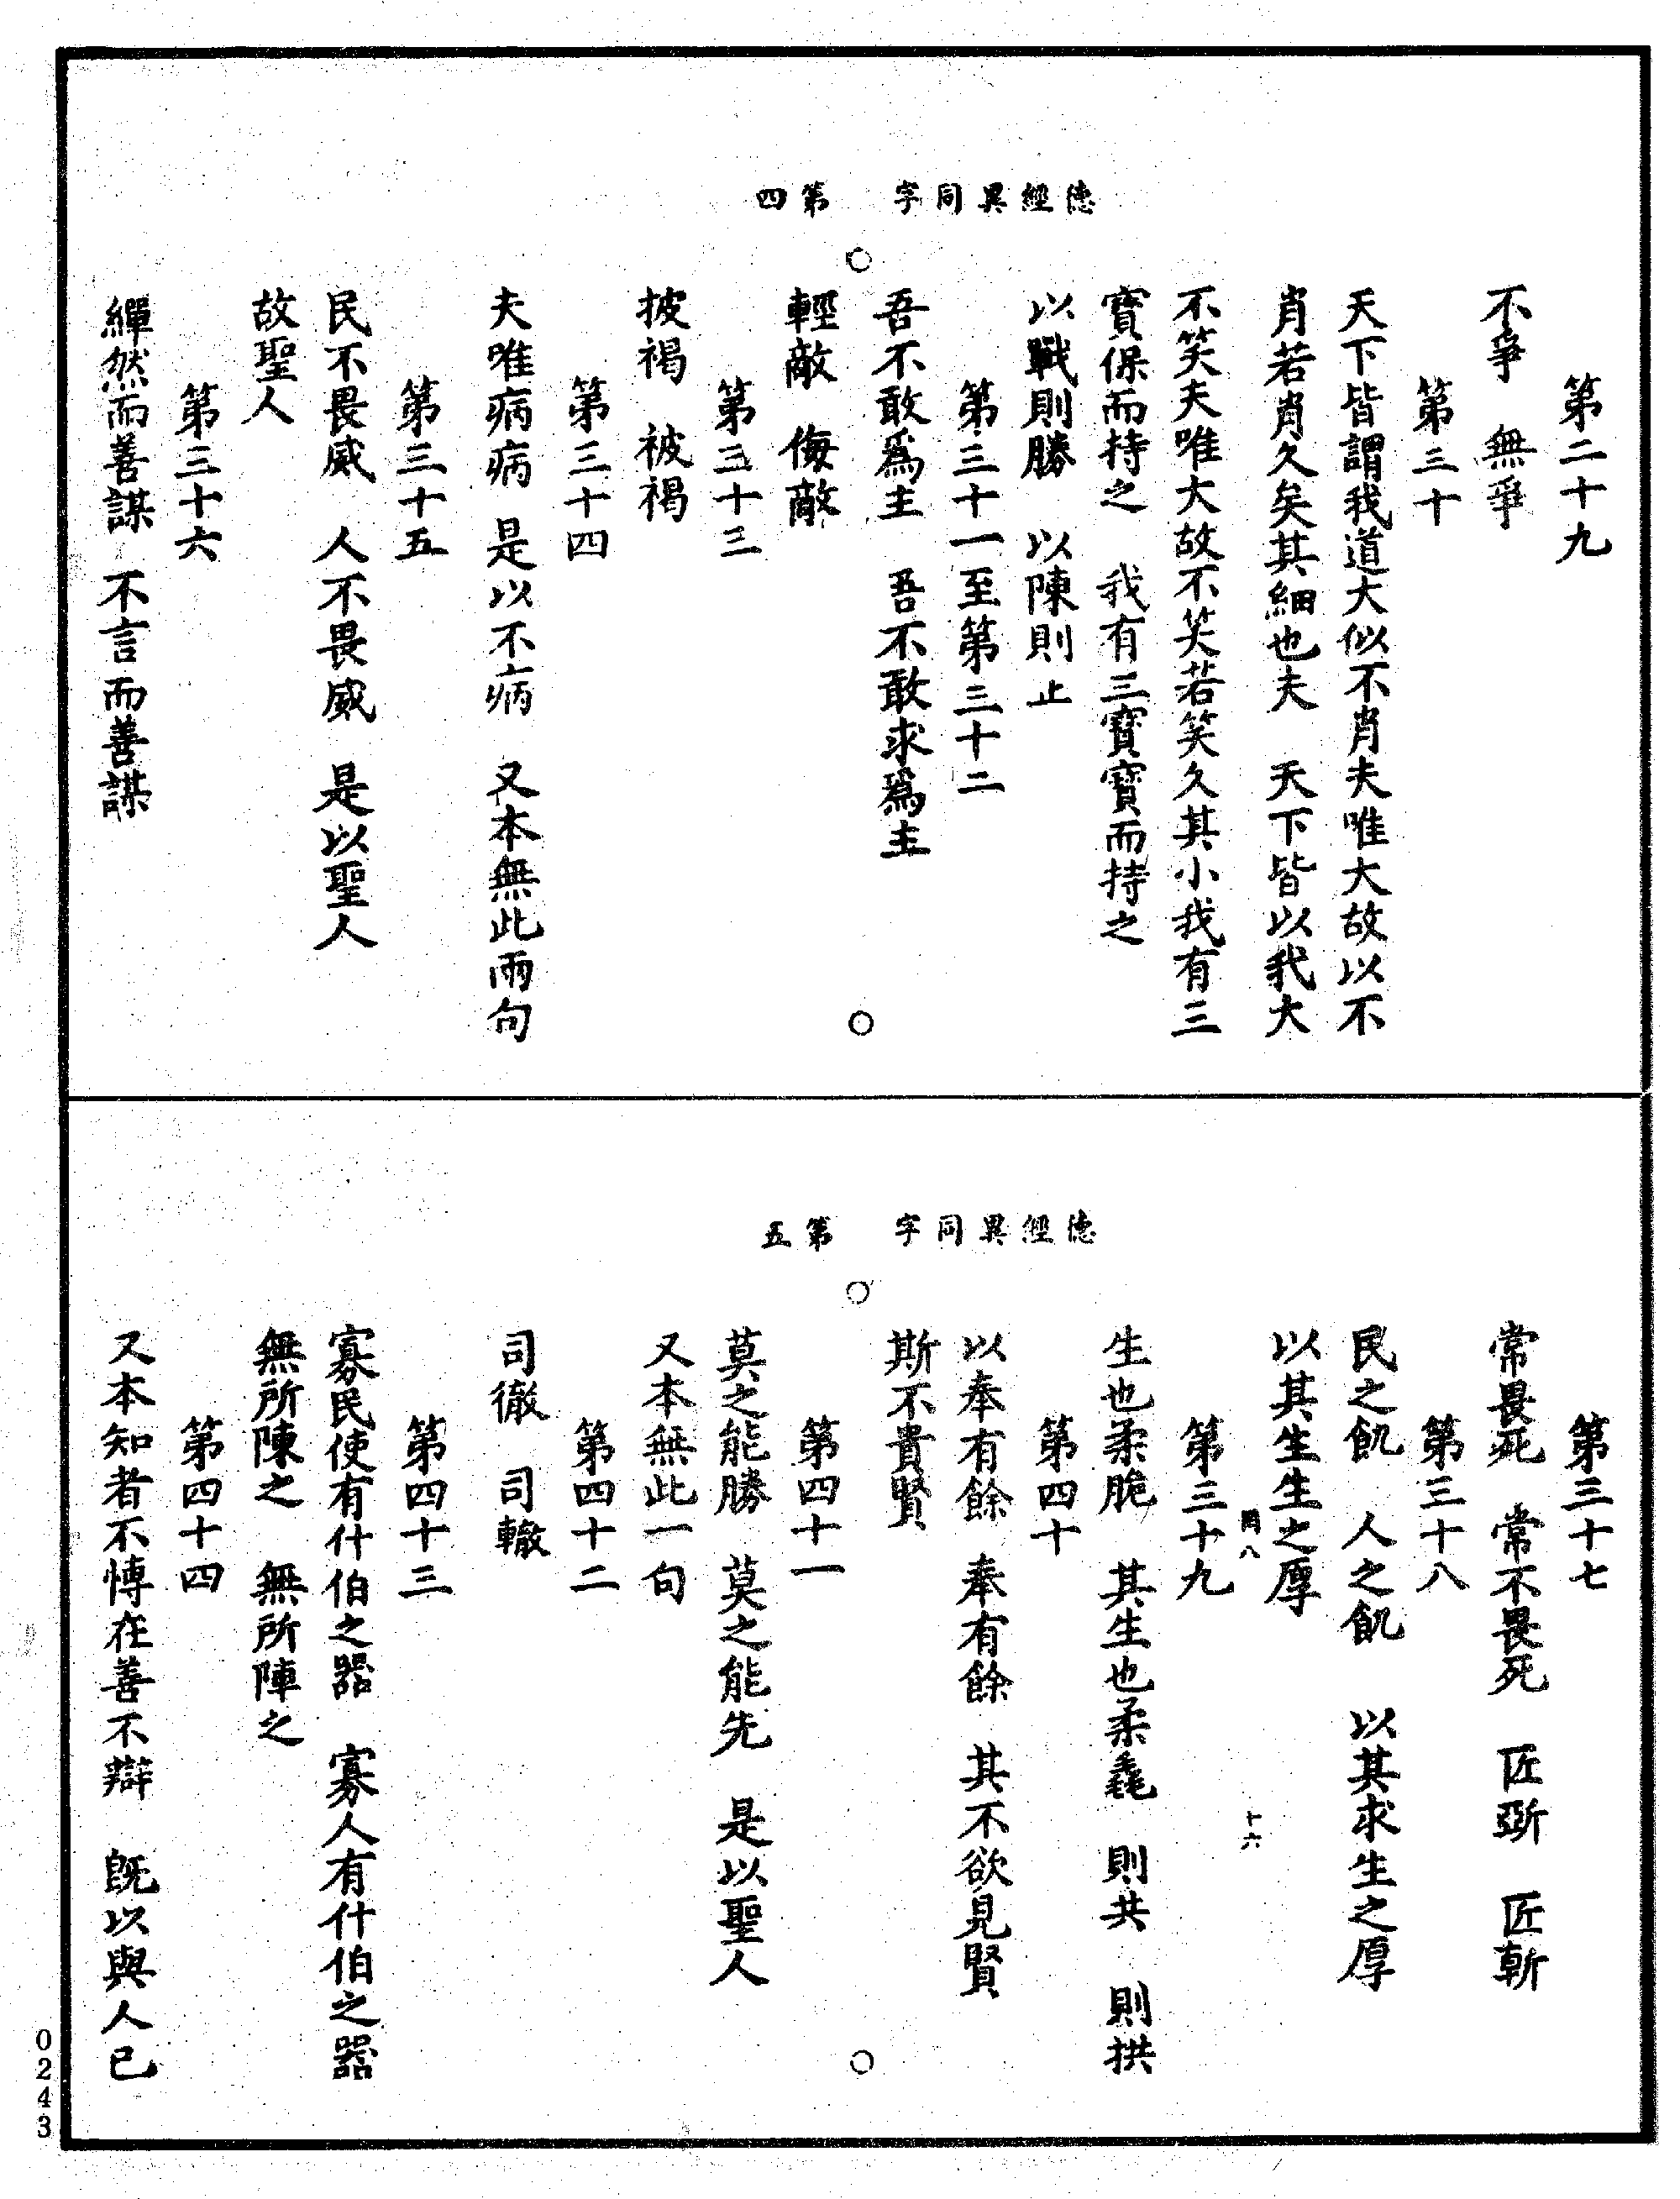 德經異同字 第四
第二十九
不爭 無爭
第三十
天下皆謂我道大似不肖夫唯大故以不
肖若肖久矣其細也夫 天下皆以我大
不笑夫唯大故不笑若笑久其小我有三
寶保而持之 我有三寶寶而持之
以戰則勝 以陳則止
第三十一至第三十二
吾不敢爲主 吾不敢求爲主
輕敵 侮敵
第三十三
披褐 被褐
第三十四
夫唯病病 是以不病 又本無此兩句
第三十五
民不畏威 人不畏威 是以聖人
故聖人
第三十六
繟然而善謀 不言而善謀
德經異同字 第五
第三十七
常畏死 常不畏死 匠斲 匠斬
第三十八
民之飢 人之飢 以其求生之厚
以其生生之厚
罔八 十六
第三十九
生也柔脆 其生也柔毳 則共 則拱
第四十
以奉有餘 奉有餘 其不欲見賢
斯不貴賢
第四十一
莫之能勝 莫之能先 是以聖人
又本無此一句
第四十二
司徹 司轍
第四十三
寡民使有什伯之器 寡人有什伯之器
無所陳之 無所陣之
第四十四
又本知者不慱在善不辯 旣以與人已
0243